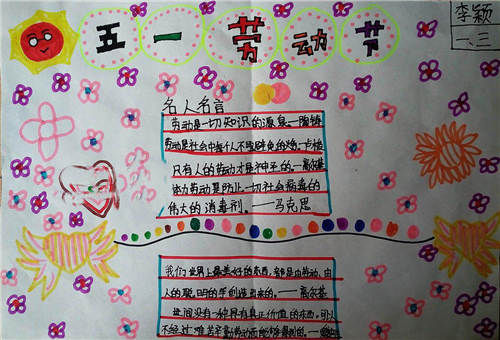 五一劳动节
李颖
一、三
名人名言
劳动是一切知识的源泉—陶铸
劳动是社会中每个人不可避免的
只有人的劳动才是神圣的。—高尔基
体力劳动是防止一切社会病毒的
伟大的消毒剂。——马克思
我们世界上最美好的东西,都是由劳动、由
人的聪明的手创造出来的。——高尔基
世间没有一种具有真正价值的东西,可以
不经过艰苦辛勤劳动而能够得到的。